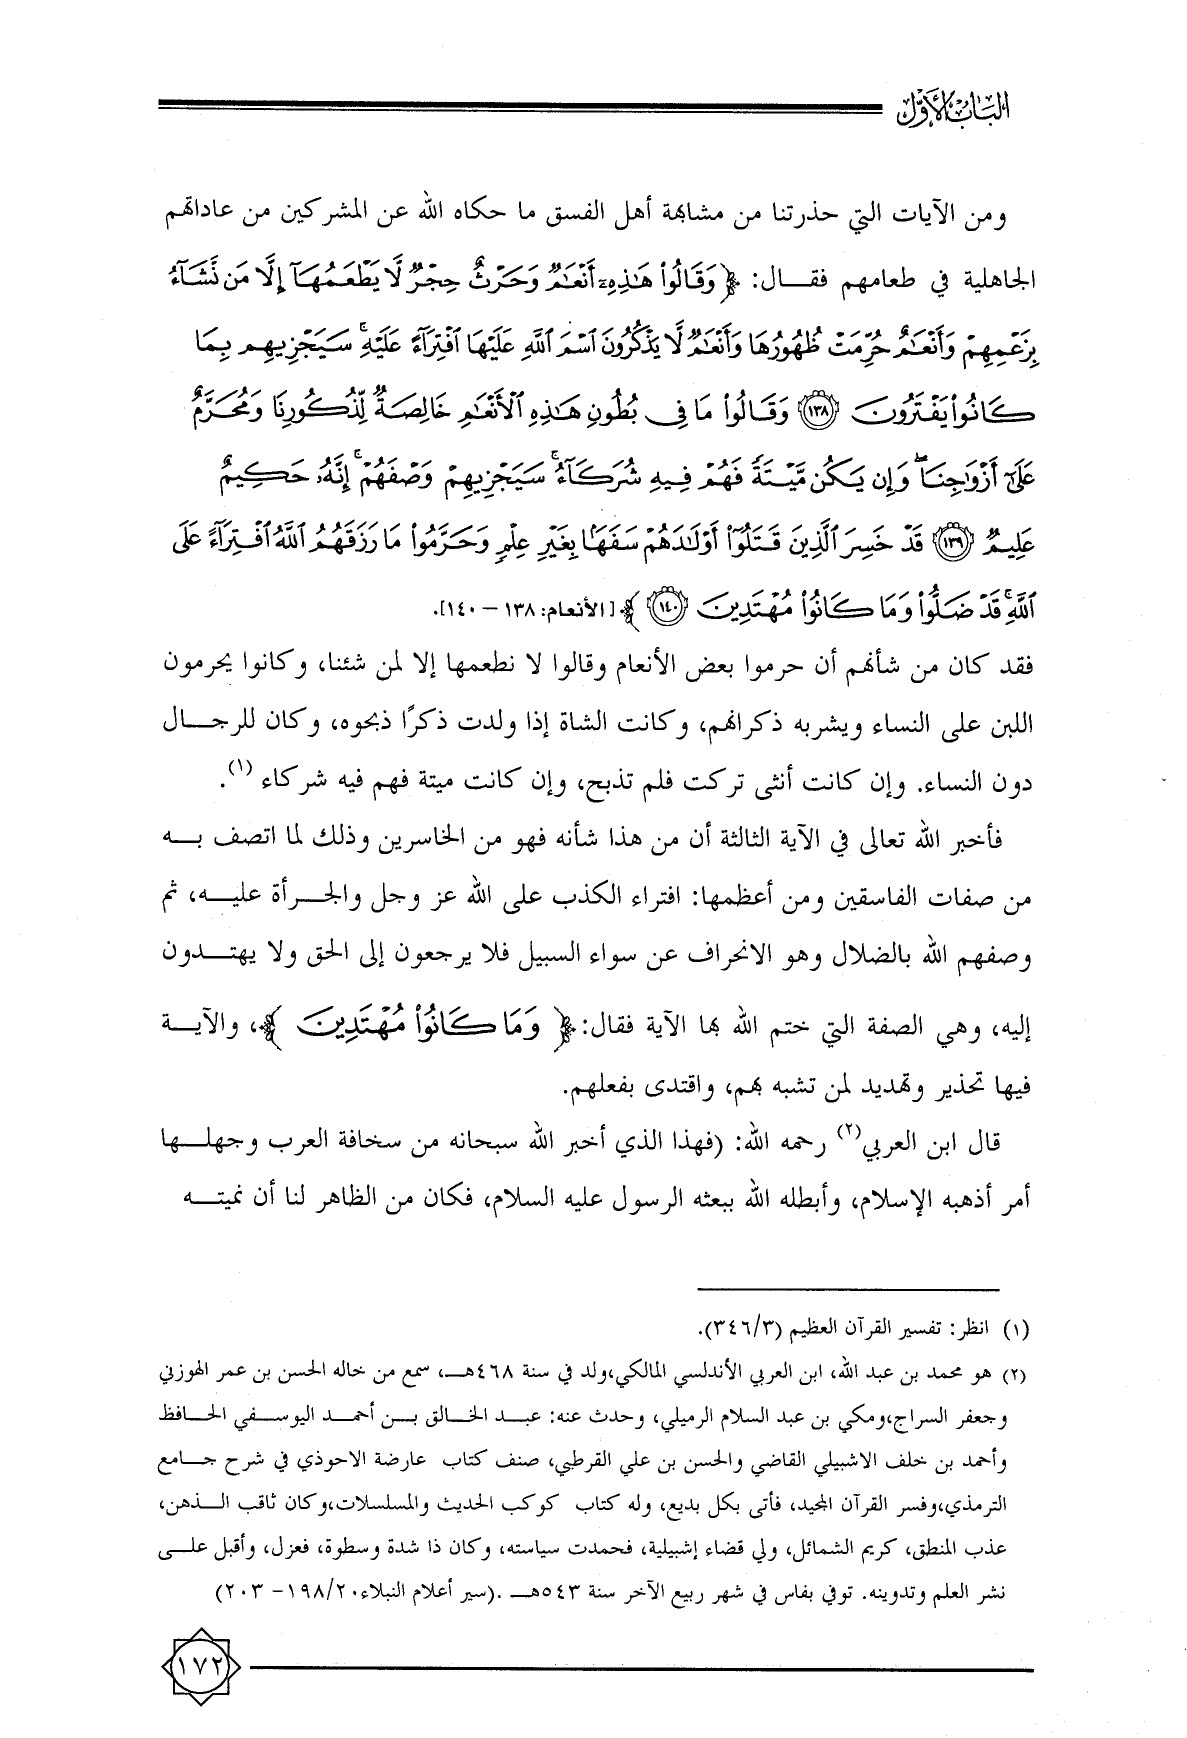 الباب الأول
ومن الآيات التي حذرتنا من مشابهة أهل الفسق ما حكاه الله عن المشركين من عاداتهم
الجاهلية في طعامهم فقـــال: ﴿ وَقَالُوا۟ هَـٰذِهِۦٓ أَنْعَـٰمٌ وَحَرْثٌ حِجْرٌ لَّا يَطْعَمُهَآ إِلَّا مَن نَّشَآءُ
بِزَعْمِهِمْ وَأَنْعَـٰمٌ حُرِّمَتْ ظُهُورُهَا وَأَنْعَـٰمٌ لَّا يَذْكُرُونَ ٱسْمَ ٱللَّهِ عَلَيْهَا ٱفْتِرَآءً عَلَيْهِ ۚ سَيَجْزِيهِم بِمَا
كَانُوا۟ يَفْتَرُونَ ﴿١٣٨﴾ وَقَالُوا۟ مَا فِى بُطُونِ هَـٰذِهِ ٱلْأَنْعَـٰمِ خَالِصَةٌ لِّذُكُورِنَا وَمُحَرَّمٌ
عَلَىٰٓ أَزْوَٰجِنَا ۖ وَإِن يَكُن مَّيْتَةً فَهُمْ فِيهِ شُرَكَآءُ ۚ سَيَجْزِيهِمْ وَصْفَهُمْ ۚ إِنَّهُۥ حَكِيمٌ
عَلِيمٌ ﴿١٣٩﴾ قَدْ خَسِرَ ٱلَّذِينَ قَتَلُوٓا۟ أَوْلَـٰدَهُمْ سَفَهًۢا بِغَيْرِ عِلْمٍ وَحَرَّمُوا۟ مَا رَزَقَهُمُ ٱللَّهُ ٱفْتِرَآءً عَلَى
ٱللَّهِ ۚ قَدْ ضَلُّوا۟ وَمَا كَانُوا۟ مُهْتَدِينَ ﴿١٤٠﴾ ﴾ [الأنعام: ١٣٨ – ١٤٠].
فقد كان من شأنهم أن حرموا بعض الأنعام وقالوا لا نطعمها إلا لمن شئنا، وكانوا يحرمون
اللبن على النساء ويشربه ذكرانهم، وكانت الشاة إذا ولدت ذكرًا ذبحوه، وكان للرجـــال
دون النساء. وإن كانت أنثى تركت فلم تذبح، وإن كانت ميتة فهم فيه شركاء (١).
فأخبر الله تعالى في الآية الثالثة أن من هذا شأنه فهو من الخاسرين وذلك لما اتصف بـــه
من صفات الفاسقين ومن أعظمها: افتراء الكذب على الله عز وجل والجـــرأة عليـــه، ثم
وصفهم الله بالضلال وهو الانحراف عن سواء السبيل فلا يرجعون إلى الحق ولا يهتـــدون
إليه، وهي الصفة التي ختم الله بها الآية فقال: ﴿ وَمَا كَانُوا۟ مُهْتَدِينَ ﴾، والآيـــة
فيها تحذير وتهديد لمن تشبه بهم، واقتدى بفعلهم.
قال ابن العربي(٢) رحمه الله: (فهذا الذي أخبر الله سبحانه من سخافة العرب وجهلـــها
أمر أذهبه الإسلام، وأبطله الله ببعثه الرسول عليه السلام، فكان من الظاهر لنا أن نميتـــه
(١) انظر: تفسير القرآن العظيم (٣٤٦/٣).
(٢) هو محمد بن عبد الله، ابن العربي الأندلسي المالكي،ولد في سنة ٤٦٨هـــ، سمع من خاله الحسن بن عمر الهوزني
وجعفر السراج،ومكي بن عبد السلام الرميلي، وحدث عنه: عبـــد الخـــالق بـــن أحمـــد اليوســـفي الحـــافظ
وأحمد بن خلف الاشبيلي القاضي والحسن بن علي القرطبي، صنف كتاب عارضة الاحوذي في شرح جـــامع
الترمذي،وفسر القرآن المجيد، فأتى بكل بديع، وله كتاب كوكب الحديث والمسلسلات،وكان ثاقب الـــذهن،
عذب المنطق، كريم الشمائل، ولي قضاء إشبيلية، فحمدت سياسته، وكان ذا شدة وسطوة، فعزل، وأقبل علـــى
نشر العلم وتدوينه. توفي بفاس في شهر ربيع الآخر سنة ٥٤٣هـــ .(سير أعلام النبلاء١٩٨/٢٠- ٢٠٣)
١٧٢